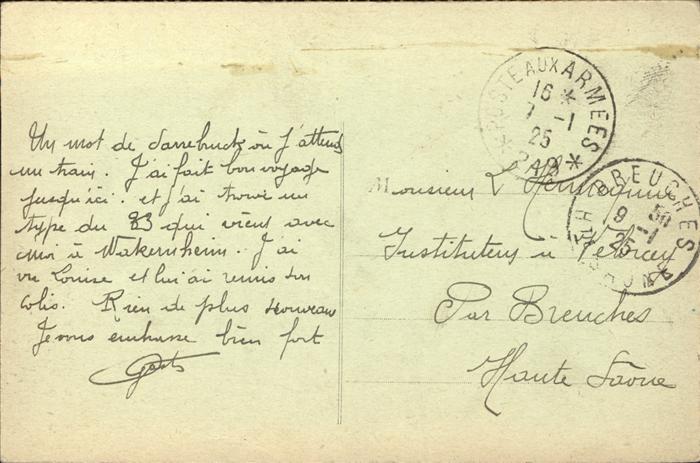 Un mot de Sarrebruck où j'attends
un train. J'ai fait bon voyage
jusqu'ici. et j'ai trouvé un
type du 23 qui vient avec
moi à Wakernheim. J'ai
vu Louise et lui ai remis son
colis. Rien de plus nouveau
Je vous embrasse bien fort
POSTE AUX ARMEES
16 *
7 -1
25
Monsieur L
Instituteur à Velorcey
Par Breuches
Haute Saône
BREUCHES
9 50
-1
25